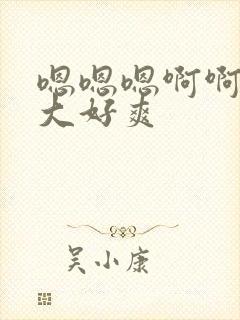 嗯嗯嗯啊啊
大好爽
吴小康